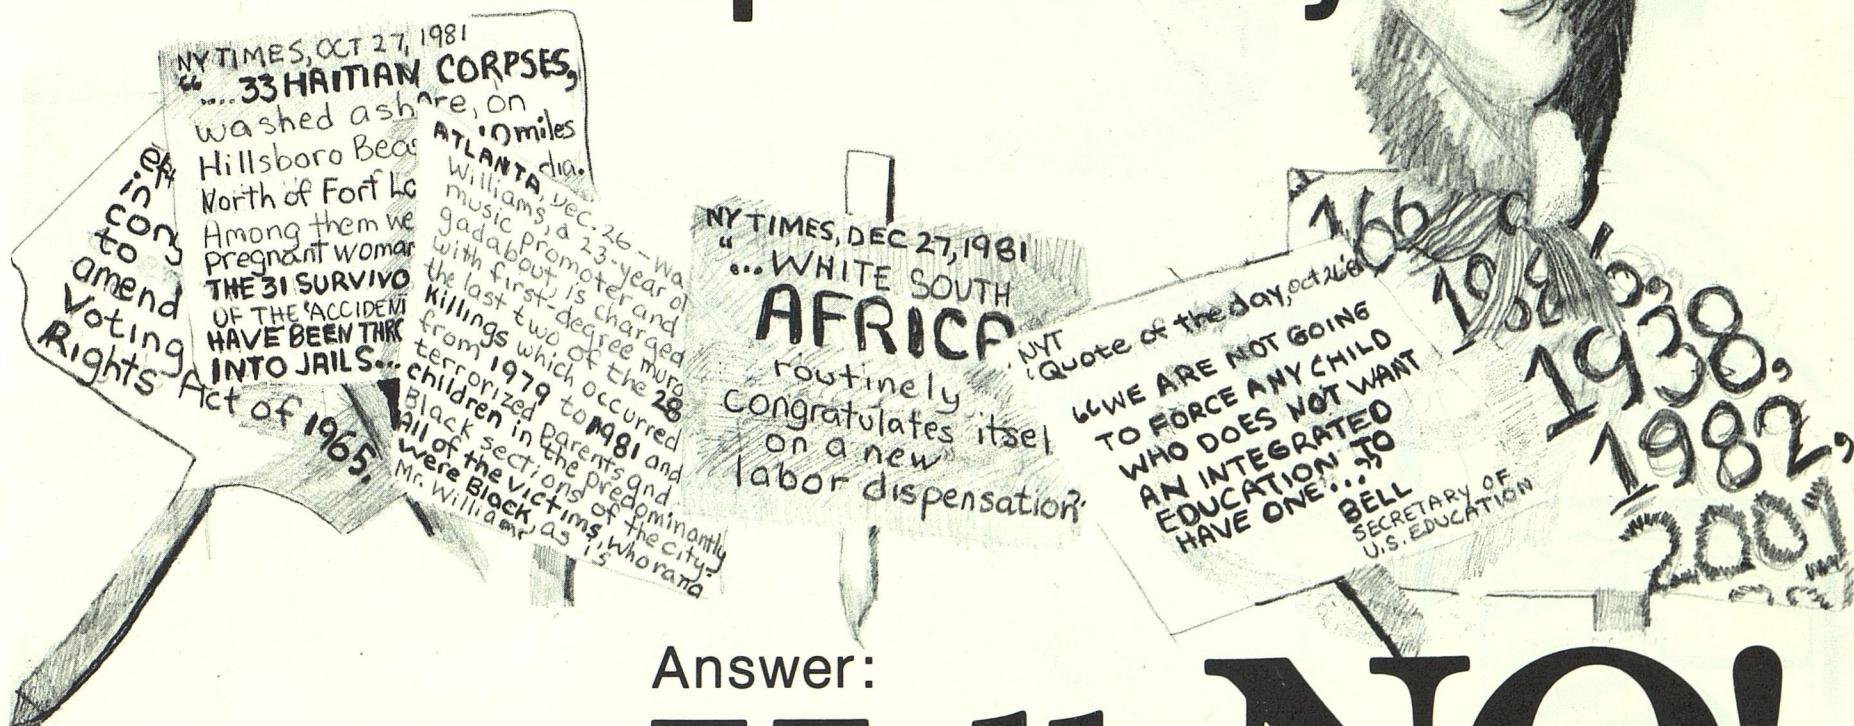 to
amend
Voting
Rights Act of 1965.
NY TIMES, OCT 27, 1981
"....33 HAITIAN CORPSES,
washed ashore, on
Hillsboro Bea miles
North of Fort L dia.
Among them we
pregnant woman
THE 31 SURVIVO
OF THE "ACCIDEN
HAVE BEEN THR
INTO JAILS...
ATLANTA, Dec. 26 — Wa
Williams, a 23-year ol
music promoter and
gadabout, is charged
with first-degree murd
the last two of the 28
Killings which occurred
from 1979 to 1981 and
terrorized parents and
children in the predominantly
Black sections of the city.
All of the victims, who ran
were Black, as is
Mr. Williams
NY TIMES, DEC 27, 1981
"...WHITE SOUTH
AFRICA
routinely
congratulates itsel
on a new
labor dispensation?
NYT
'Quote of the day, oct 26'81
"WE ARE NOT GOING
TO FORCE ANY CHILD
WHO DOES NOT WANT
AN INTEGRATED
EDUCATION TO
HAVE ONE..."
BELL
SECRETARY OF
U.S. EDUCATION
1938,
1982,
2001
Answer:
NO!